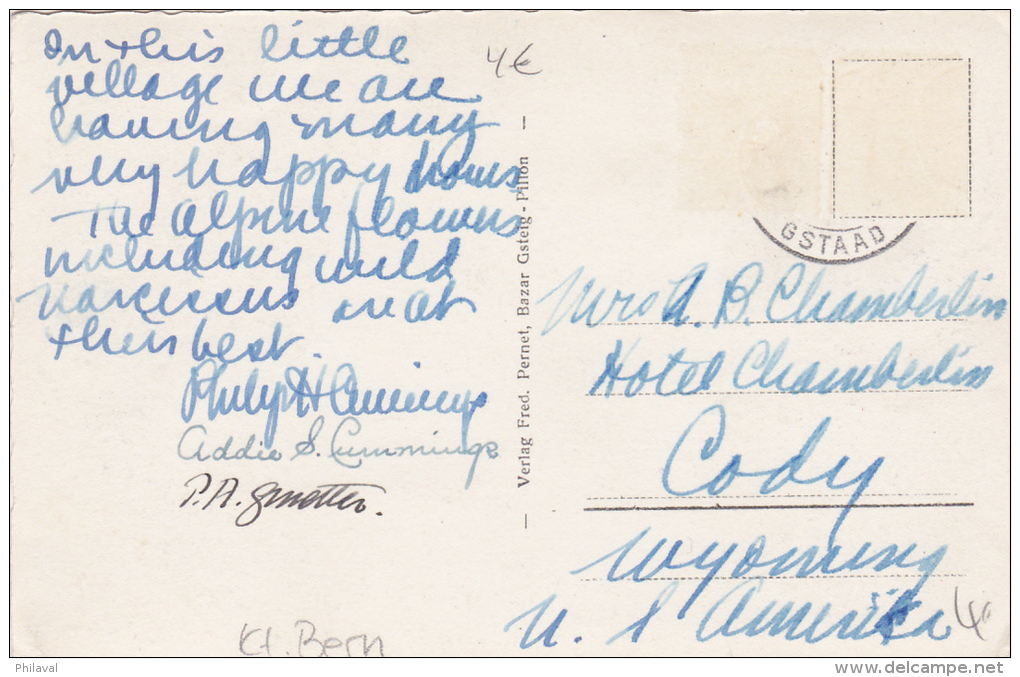 In this little
village we are
having many
very happy hours
The Alpine flowers
including wild
narcissus are at
their best.
Philip H Cummings
Addie S. Cummings
P. A.
4€
Verlag Fred. Pernet, Bazar Gsteig - Pillon
GSTAAD
Mrs A. B. Chamberlin
Hotel Chamberlin
Cody
Wyoming
U. S Amerika
4€
Kt. Bern
Philaval
www.delcampe.net